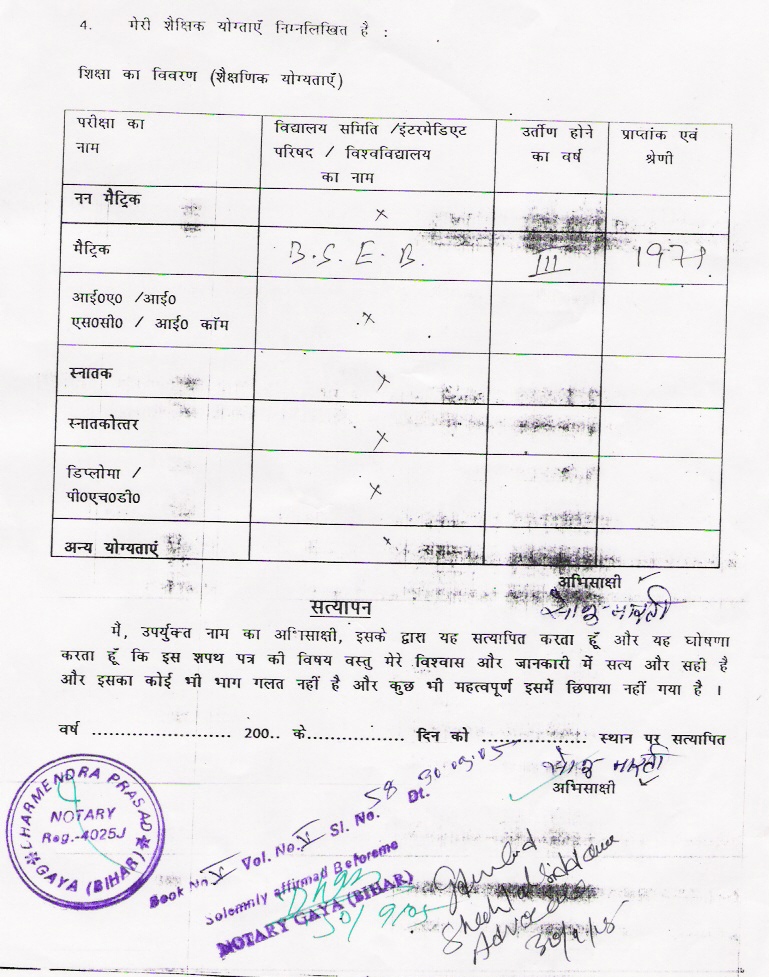 4. मेरी शैक्षिक योग्ताएँ निम्नलिखित है :
शिक्षा का विवरण (शैक्षणिक योग्यताएँ)
परीक्षा का नाम
विद्यालय समिति /इंटरमेडिएट परिषद / विश्वविद्यालय का नाम
उर्तीण होने का वर्ष
प्राप्तांक एवं श्रेणी
नन मैट्रिक x
मैट्रिक B.S.E.B. III 1971
आई०ए० /आई०
एस०सी० / आई० कॉम x
स्नातक x
स्नातकोत्तर x
डिप्लोमा /
पी०एच०डी० x
अन्य योग्यताएं x
अभिसाक्षी
सत्यापन
मैं, उपर्युक्त नाम का अभिसाक्षी, इसके द्वारा यह सत्यापित करता हूँ और यह घोषणा
करता हूँ कि इस शपथ पत्र की विषय वस्तु मेरे विश्वास और जानकारी में सत्य और सही है
और इसका कोई भी भाग गलत नहीं है और कुछ भी महत्वपूर्ण इसमें छिपाया नहीं गया है ।
वर्ष ...................... 200.. के................. दिन को .................. स्थान पर सत्यापित
अभिसाक्षी
DHARMENDRA PRASAD
NOTARY
Reg.-4025J
GAYA (BIHAR)
Book No. V Vol. No. V Sl. No. 58 Dt. 30.09.05
Solemnly affirmad Beforeme
30/9/05
NOTARY GAYA (BIHAR)
Advocate
30/9/05